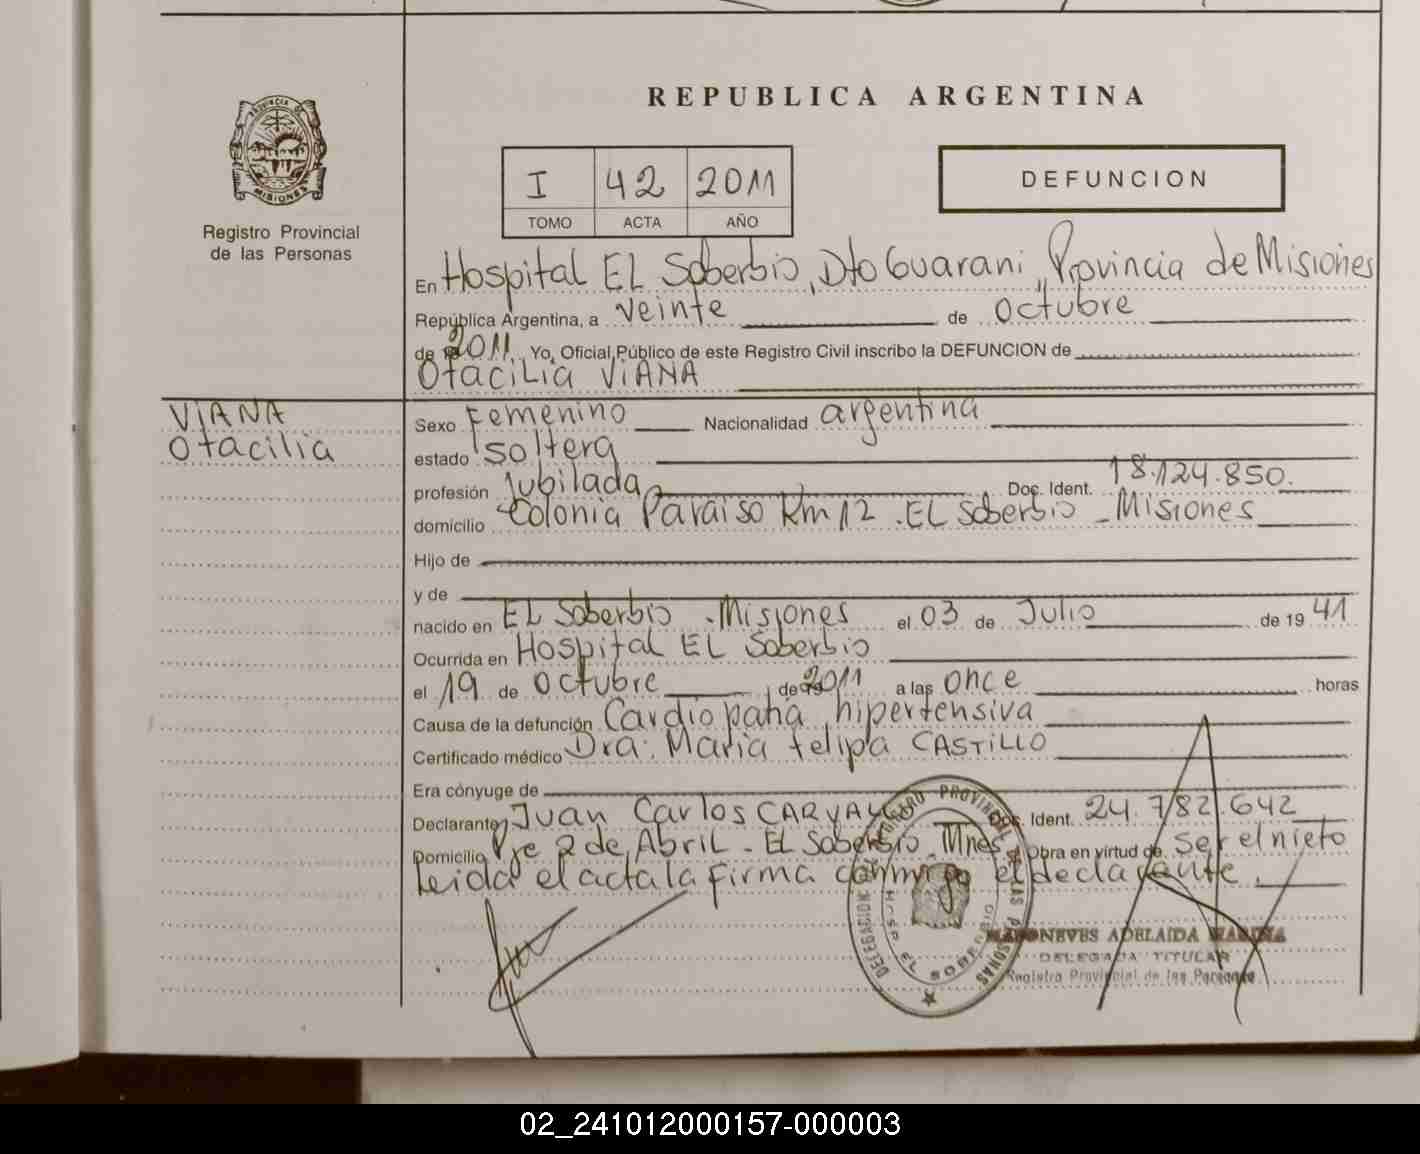 REPUBLICA ARGENTINA
PROVINCIA DE MISIONES
Registro Provincial
de las Personas
I 42 2011
TOMO ACTA AÑO
DEFUNCION
En Hospital EL Soberbio, Dto Guarani, Provincia de Misiones
República Argentina, a veinte de octubre
de 2011. Yo, Oficial Público de este Registro Civil inscribo la DEFUNCION de
OtaciLia ViANA
ViANA
Otacilia
Sexo Femenino Nacionalidad argentina
estado soltera
profesión Jubilada Doc. Ident. 18.124.850.
domicilio Colonia Paraiso Km 12. EL Soberbio - Misiones
Hijo de
y de
nacido en EL Soberbio - Misiones el 03 de Julio de 19 41
Ocurrida en Hospital EL Soberbio
el 19 de octubre de 2011 a las once horas
Causa de la defunción Cardiopatía hipertensiva
Certificado médico Dra. Maria felipa CASTiLLO
Era cónyuge de
Declarante Juan Carlos Doc. Ident. 24.782.642
Domicilio Pje 2 de Abril - EL Soberbio Mnes Obra en virtud de ser el nieto
Leida el acta la firma conmigo el declarante.
DELEGACION REGISTRO PROVINCIAL DE LAS PERSONAS
HOSP. EL SOBERBIO
ADELAIDA MARINA
DELEGADA TITULAR
Registro Provincial de las Personas
02_241012000157-000003